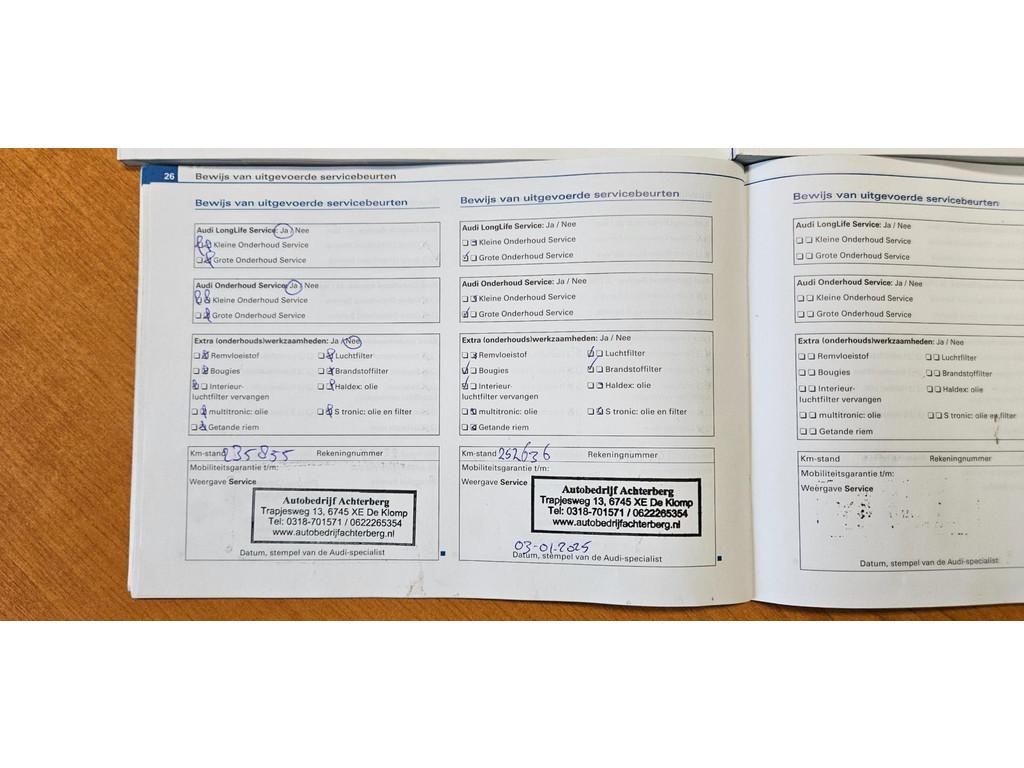 26 Bewijs van uitgevoerde servicebeurten
Bewijs van uitgevoerde servicebeurten
Audi LongLife Service: Ja / Nee
Kleine Onderhoud Service
Grote Onderhoud Service
Audi Onderhoud Service: Ja / Nee
Kleine Onderhoud Service
Grote Onderhoud Service
Extra (onderhouds)werkzaamheden: Ja / Nee
Remvloeistof Luchtfilter
Bougies Brandstoffilter
Interieur- Haldex: olie
luchtfilter vervangen
multitronic: olie S tronic: olie en filter
Getande riem
Km-stand 235855 Rekeningnummer
Mobiliteitsgarantie t/m:
Weergave Service
Autobedrijf Achterberg
Trapjesweg 13, 6745 XE De Klomp
Tel: 0318-701571 / 0622265354
www.autobedrijfachterberg.nl
Datum, stempel van de Audi-specialist
Bewijs van uitgevoerde servicebeurten
Audi LongLife Service: Ja / Nee
Kleine Onderhoud Service
Grote Onderhoud Service
Audi Onderhoud Service: Ja / Nee
Kleine Onderhoud Service
Grote Onderhoud Service
Extra (onderhouds)werkzaamheden: Ja / Nee
Remvloeistof Luchtfilter
Bougies Brandstoffilter
Interieur- Haldex: olie
luchtfilter vervangen
multitronic: olie S tronic: olie en filter
Getande riem
Km-stand 252636 Rekeningnummer
Mobiliteitsgarantie t/m:
Weergave Service
Autobedrijf Achterberg
Trapjesweg 13, 6745 XE De Klomp
Tel: 0318-701571 / 0622265354
www.autobedrijfachterberg.nl
03-01-2025
Datum, stempel van de Audi-specialist
Bewijs van uitgevoerde servicebeurten
Audi LongLife Service: Ja / Nee
Kleine Onderhoud Service
Grote Onderhoud Service
Audi Onderhoud Service: Ja / Nee
Kleine Onderhoud Service
Grote Onderhoud Service
Extra (onderhouds)werkzaamheden: Ja / Nee
Remvloeistof Luchtfilter
Bougies Brandstoffilter
Interieur- Haldex: olie
luchtfilter vervangen
multitronic: olie S tronic: olie en filter
Getande riem
Km-stand Rekeningnummer
Mobiliteitsgarantie t/m:
Weergave Service
Datum, stempel van de Audi-specialist